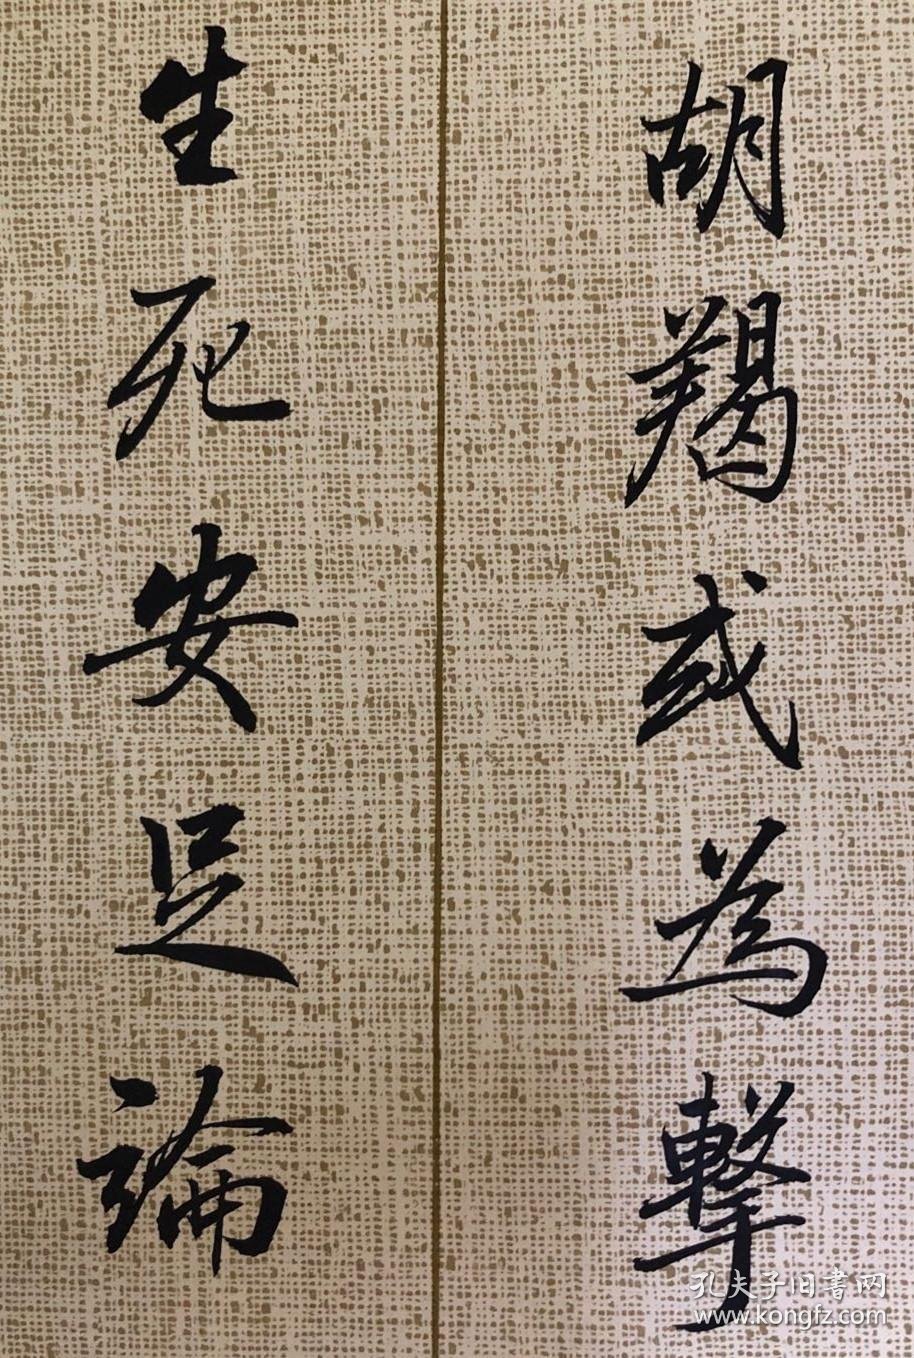 胡羯或為擊
生死安足論
孔夫子旧书网
www.kongfz.com